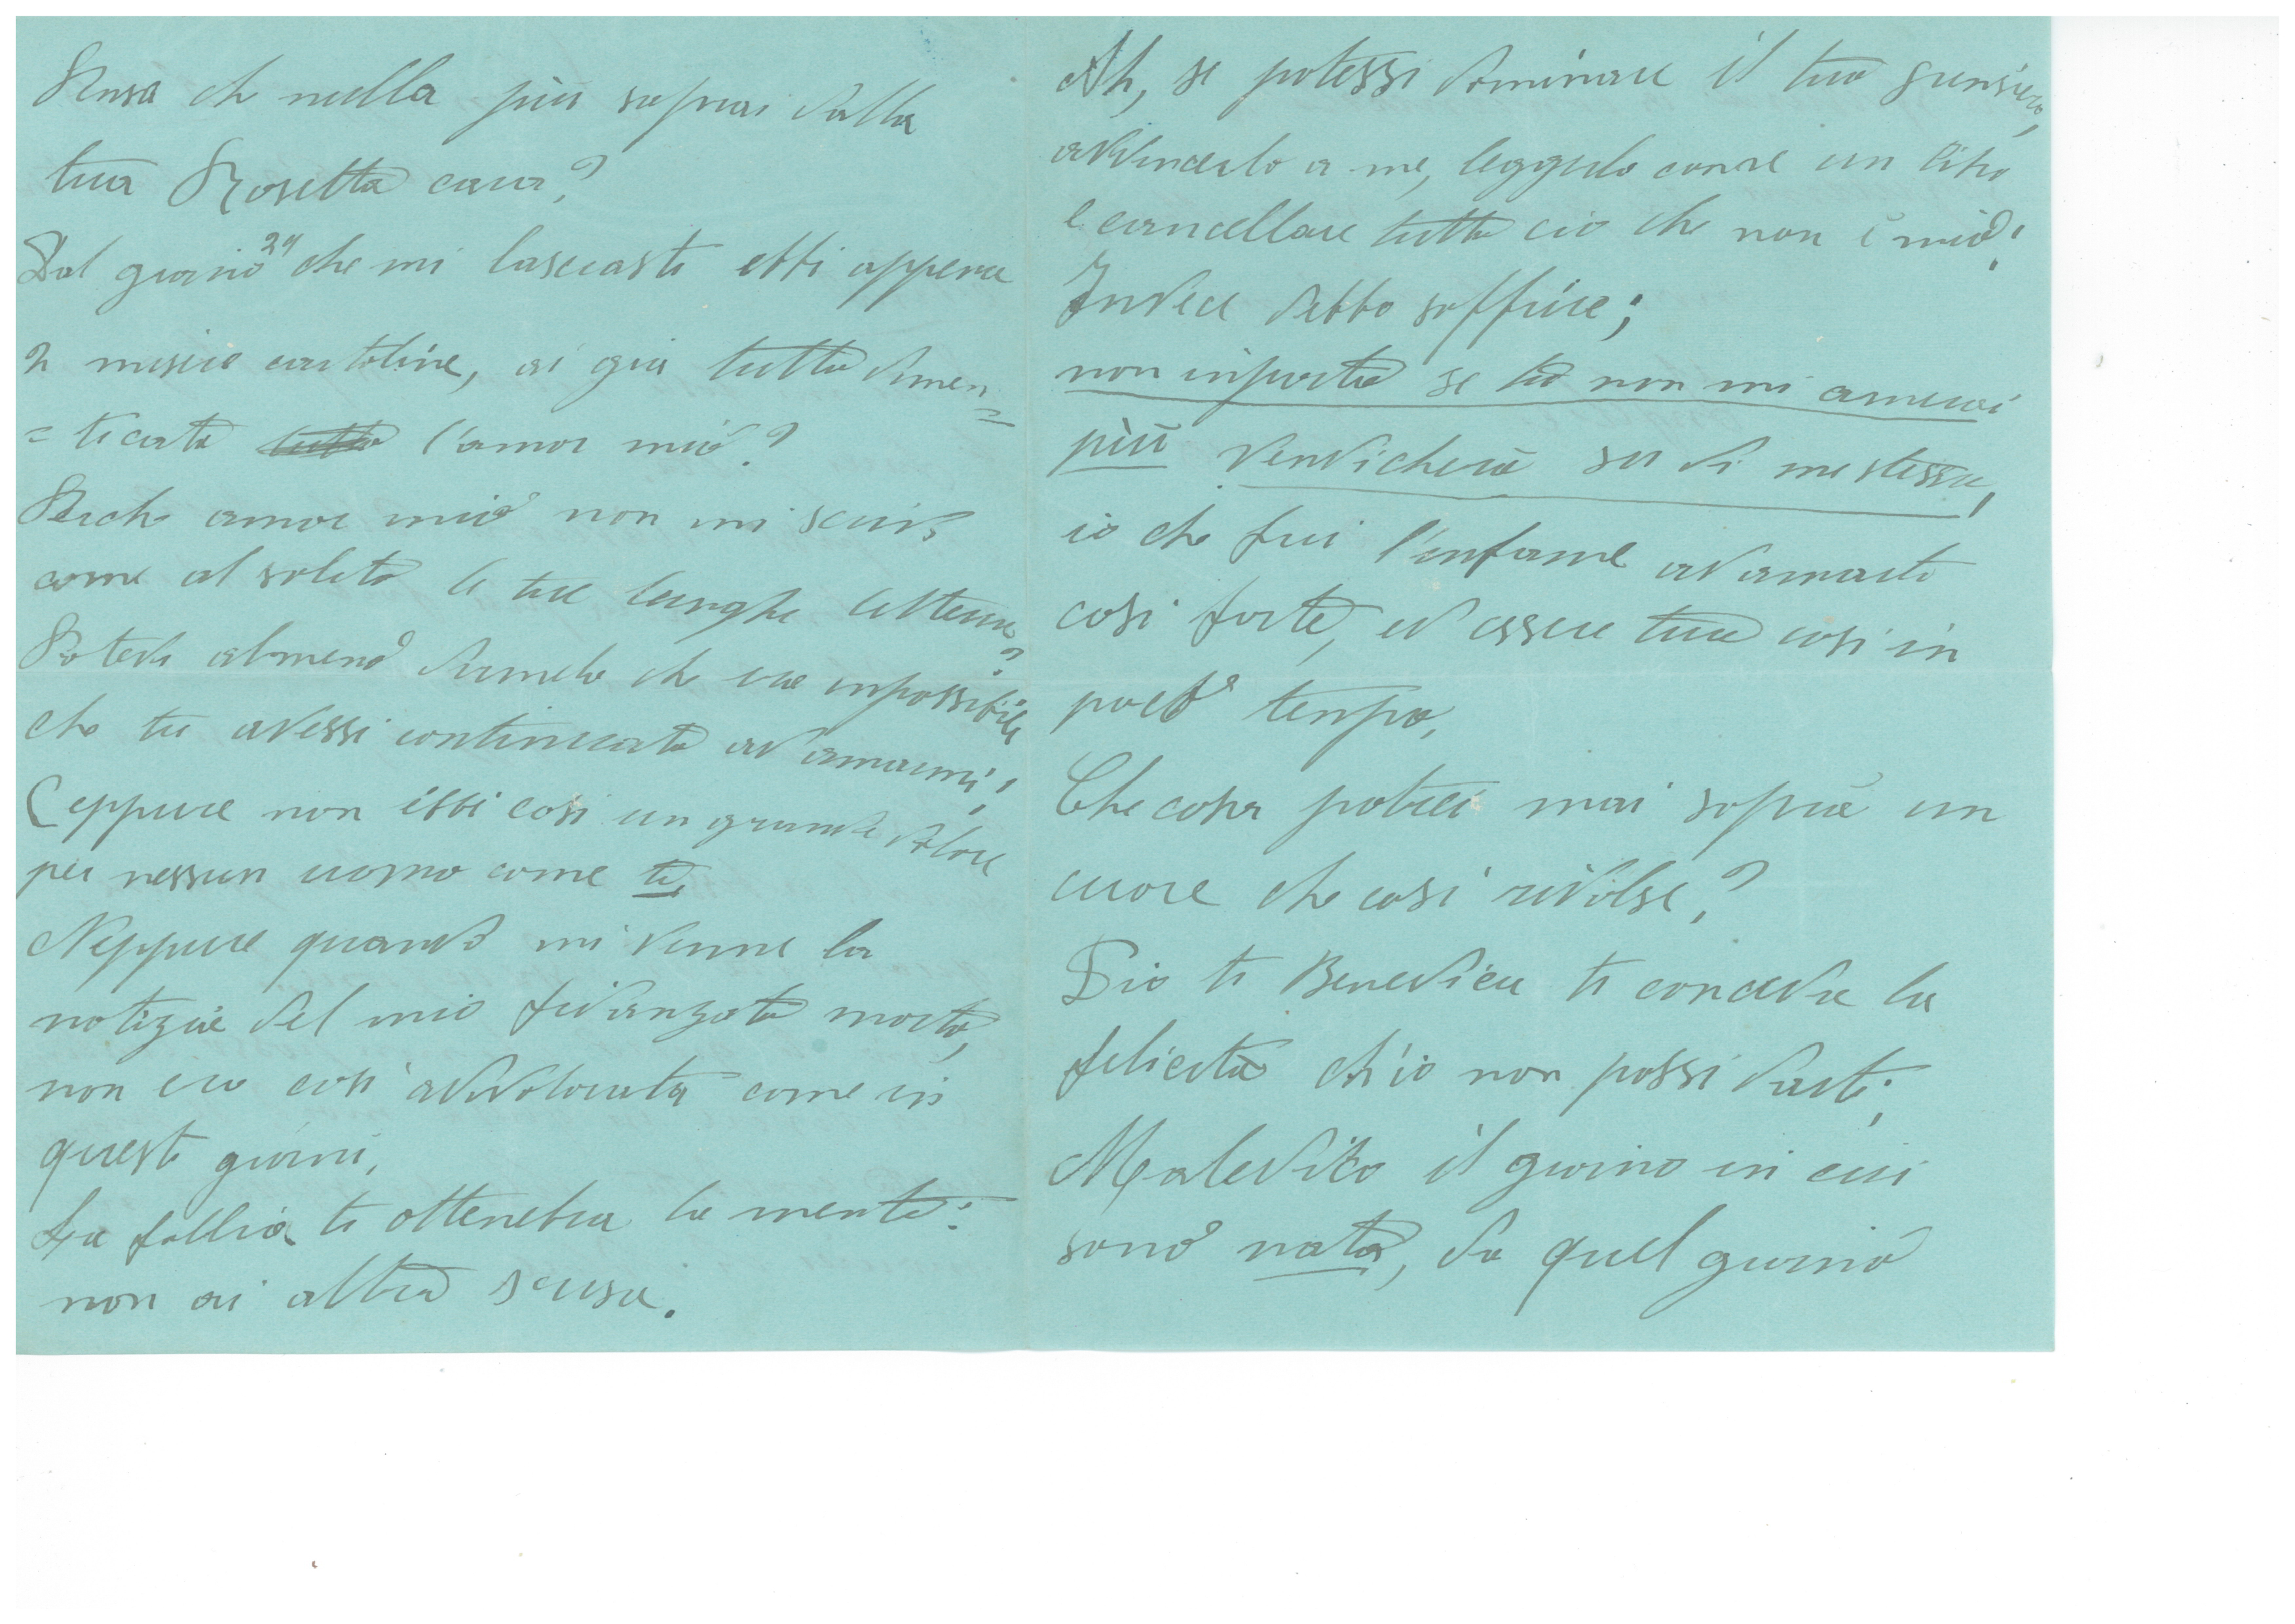 Pensa che nulla più saprai dalla
tua Rosetta cara?
Dal giorno 24 che mi lasciasti ebbi appena
2 misere cartoline, ai già tutto dimen=
=ticato tutto l'amor mio?
Perche amor mio non mi scrivi
come al solito le tue lunghe lettere?
Potevi almeno dirmelo che era inpossibile
che tu avessi continuato ad amarmi;!
(eppure non ebbi cosi un grande dolore
per nessun uomo come te,
Neppure quando mi venne la
notizia del mio fidanzato morto,
non ero così addolorata come in
questi giorni,
La follia ti ottenebra la mente:
non ai altra scusa.
Ah, se potessi dominare il tuo pensiero,
avvincerlo a me, leggerlo come un libro
e cancellare tutto cio che non è mio!
Invece debbo soffrire;
non inporta se tu non mi amerai
più vendicherò su di me stessa,
io che fui l'infame ad amarti
cosi forte, ed essere tua cosi in
poco tenpo,
Che cosa potrei mai sopra un
cuore che cosi rivolse?
Dio ti Benedica ti conceda la
felicità ch'io non possi darti;
Maledito il giorno in cui
sono nata, da quel giorno